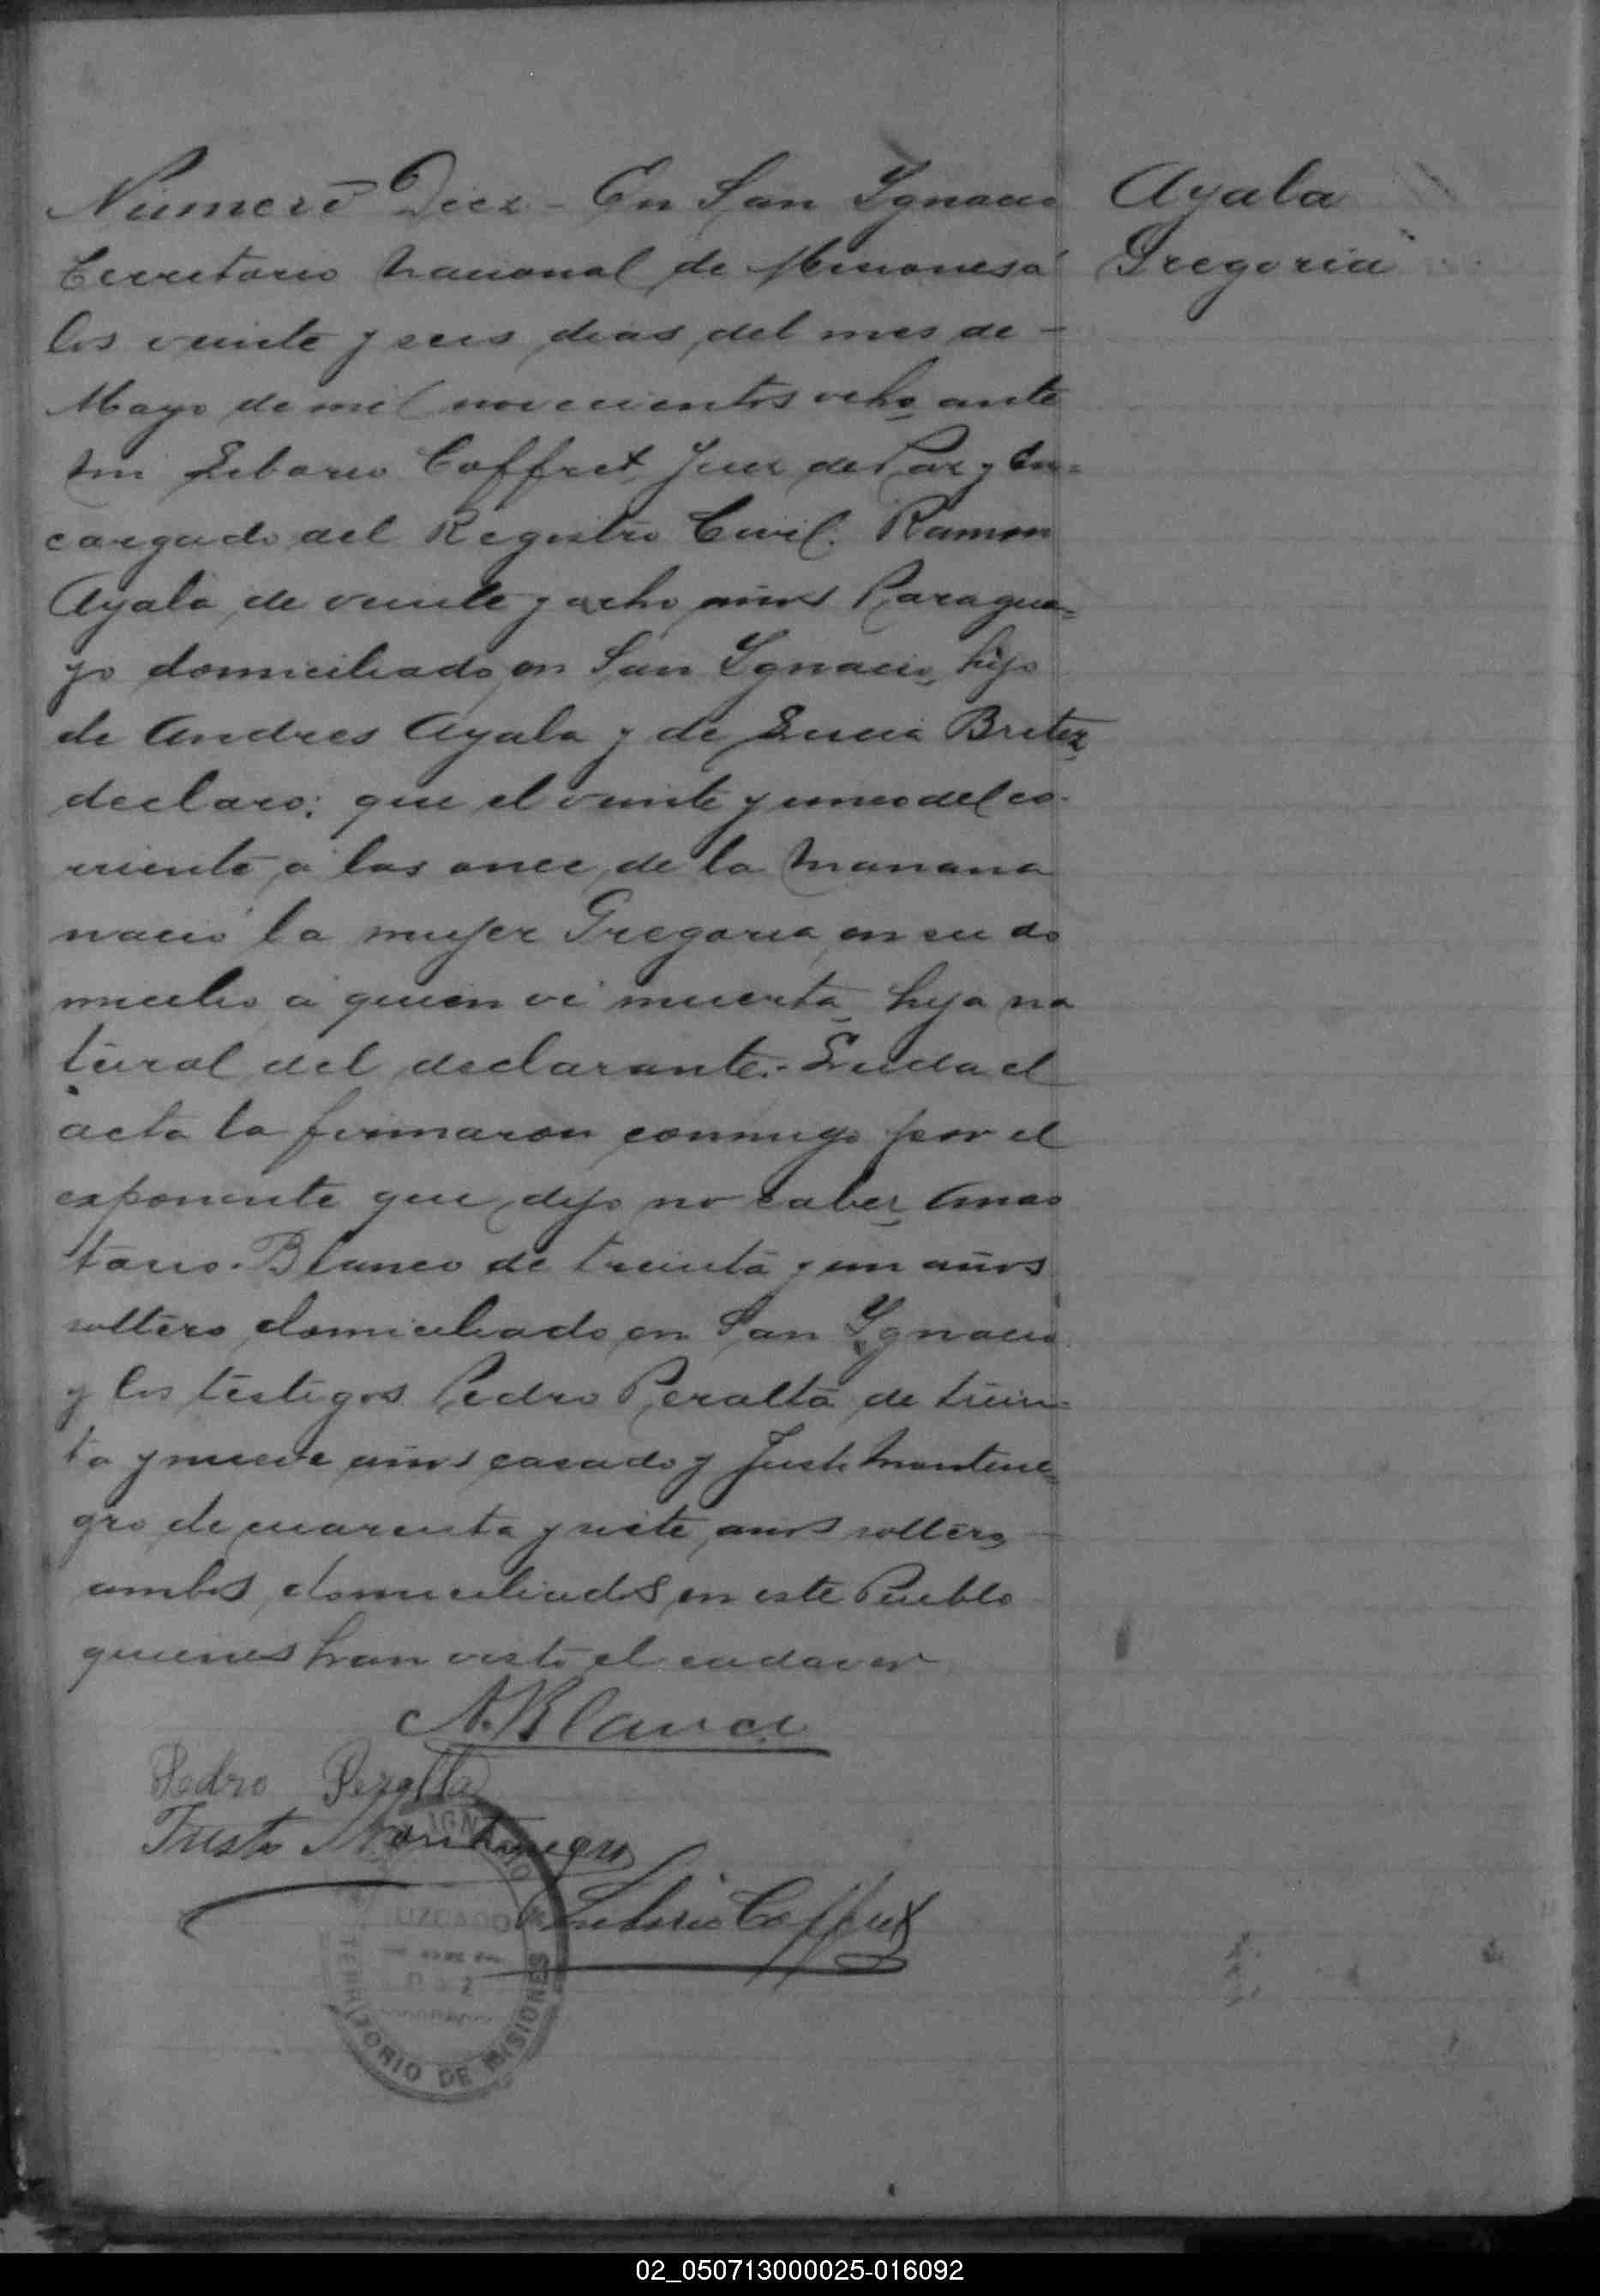 Numero Diez - En San Ygnacio
Territorio Nacional de Misiones á
los veinte y seis dias del mes de -
Mayo de mil novecientos ocho ante
mi Liborio Coffret Juez de Paz y En=
cargado del Registro Civil. Ramon
Ayala de veinte y ocho años Paragua=
yo domiciliado en San Ygnacio, hijo
de Andres Ayala y de Lucia Britez
declaro: que el veinte y cinco del co-
rriente á las once de la manana
nació la mujer Gregoria en su do
micilio á quien vi muerta hija na
tural del declarante.- Leida el
acta la firmaron conmigo por el
exponente que dijo no saber Anas
tacio Blanco de treinta y un años
soltero domiciliado en San Ygnacio
y los testigos Pedro Peralta de trein=
ta y nueve años casado y Justo Montene=
gro de cuarenta y siete años soltero -
ambos domiciliados en este Pueblo
quienes han visto el cadaver
A. Blanco
Pedro Peralta
Justo Montenegro
Liborio Coffret
TERRITORIO DE MISIONES
Ayala
Gregoria
02_050713000025-016092